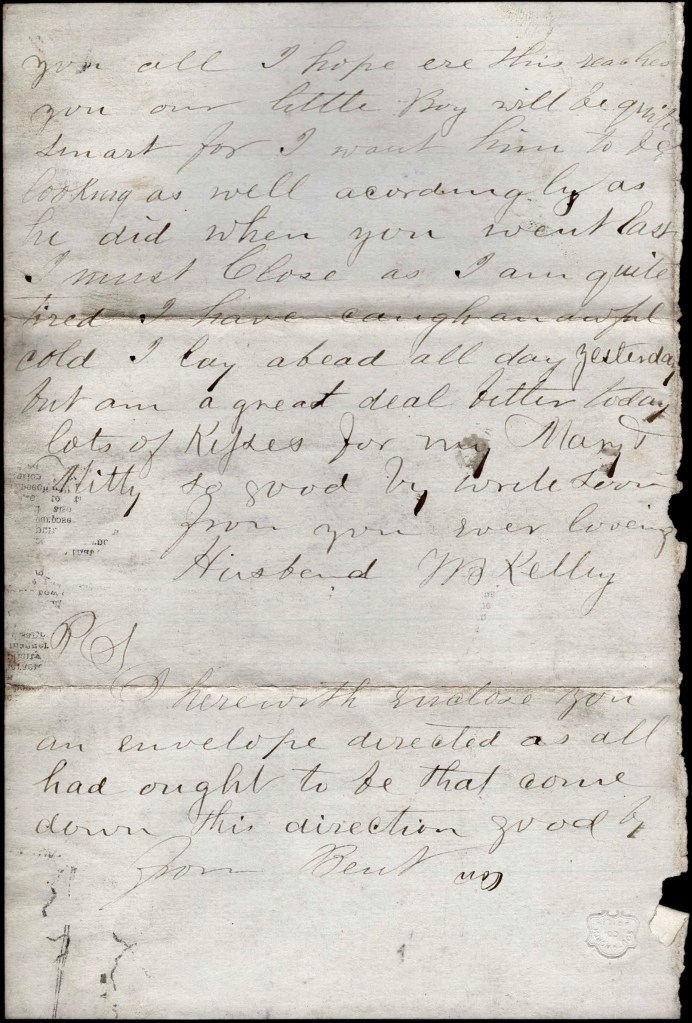 you all I hope ere this reaches
you our little Boy will be quite
smart for I want him to be
looking as well acordingly as
he did when you went East
I must Close as I am quite
tired I have caugh an awful
cold I lay abead all day yesterday
but am a great deal better today
lots of Kisses for my Mary &
Kitty so good by write soon
from you ever loveing
Husbend M Kelley
P S
I herewith enclose you
an envelope directed as all
had ought to be that come
down this direction good by
from Bent